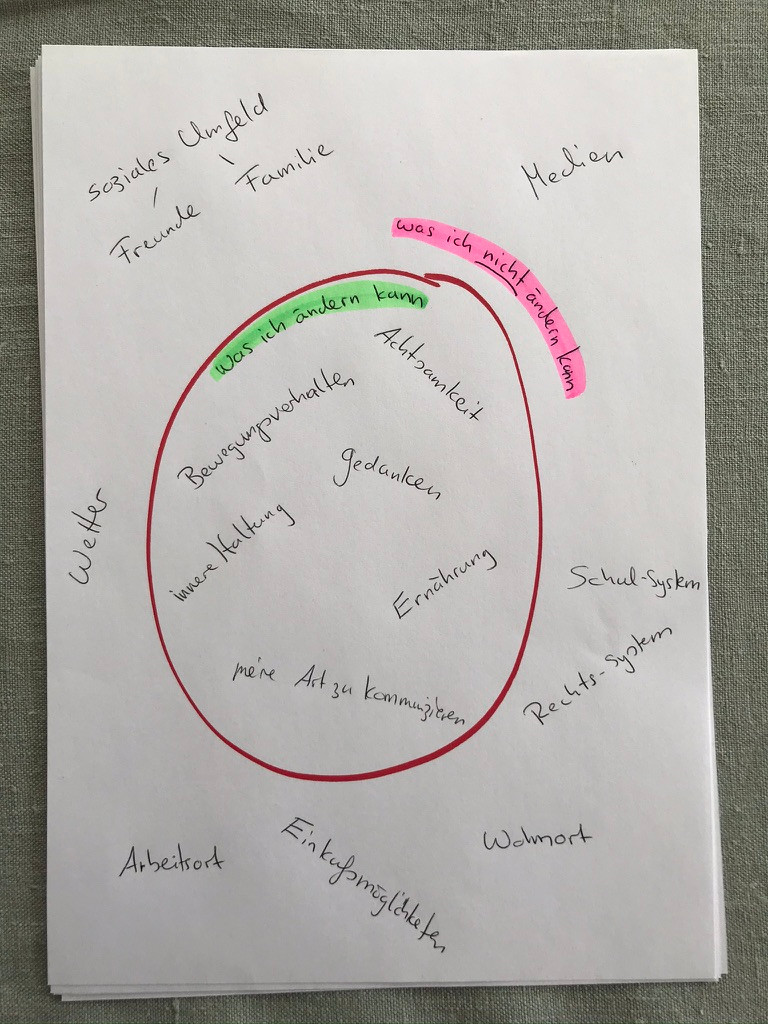 soziales Umfeld
Freunde
Familie
Medien
was ich nicht ändern kann
was ich ändern kann
Achtsamkeit
Bewegungsverhalten
Gedanken
innere Haltung
Ernährung
meine Art zu kommunizieren
Wetter
Schul-System
Rechts-System
Arbeitsort
Einkaufsmöglichkeiten
Wohnort